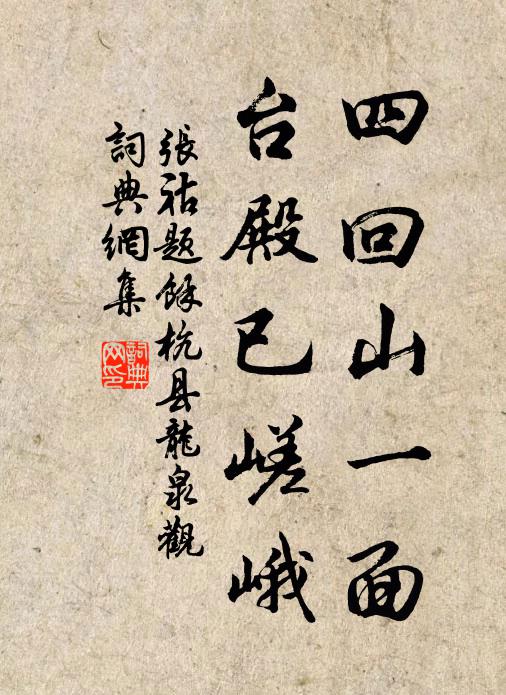 四回山一面
台殿已嵯峨
張祜题餘杭县龍泉觀
詞典網集
詞典网印